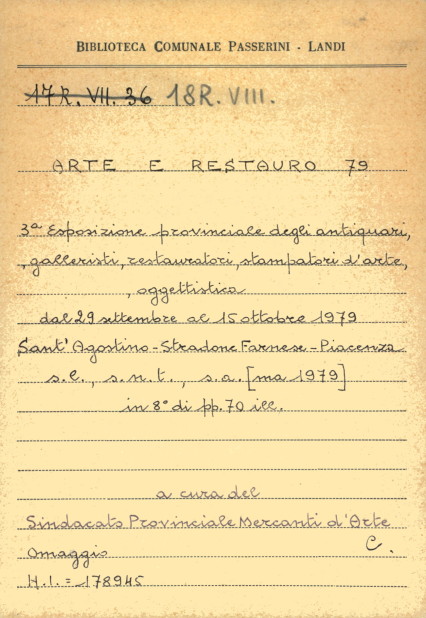 BIBLIOTECA COMUNALE PASSERINI - LANDI
17 R. VII. 36 18 R. VIII.
ARTE E RESTAURO 79
3ª Esposizione provinciale degli antiquari,
, galleristi, restauratori, stampatori d'arte,
, oggettistica
dal 29 settembre al 15 ottobre 1979
Sant'Agostino - Stradone Farnese - Piacenza
s.l., s.n.t., s.a. [ma 1979]
in 8° di pp. 70 ill.
a cura del
Sindacato Provinciale Mercanti d'Arte
Omaggio C.
H.I. = 178945